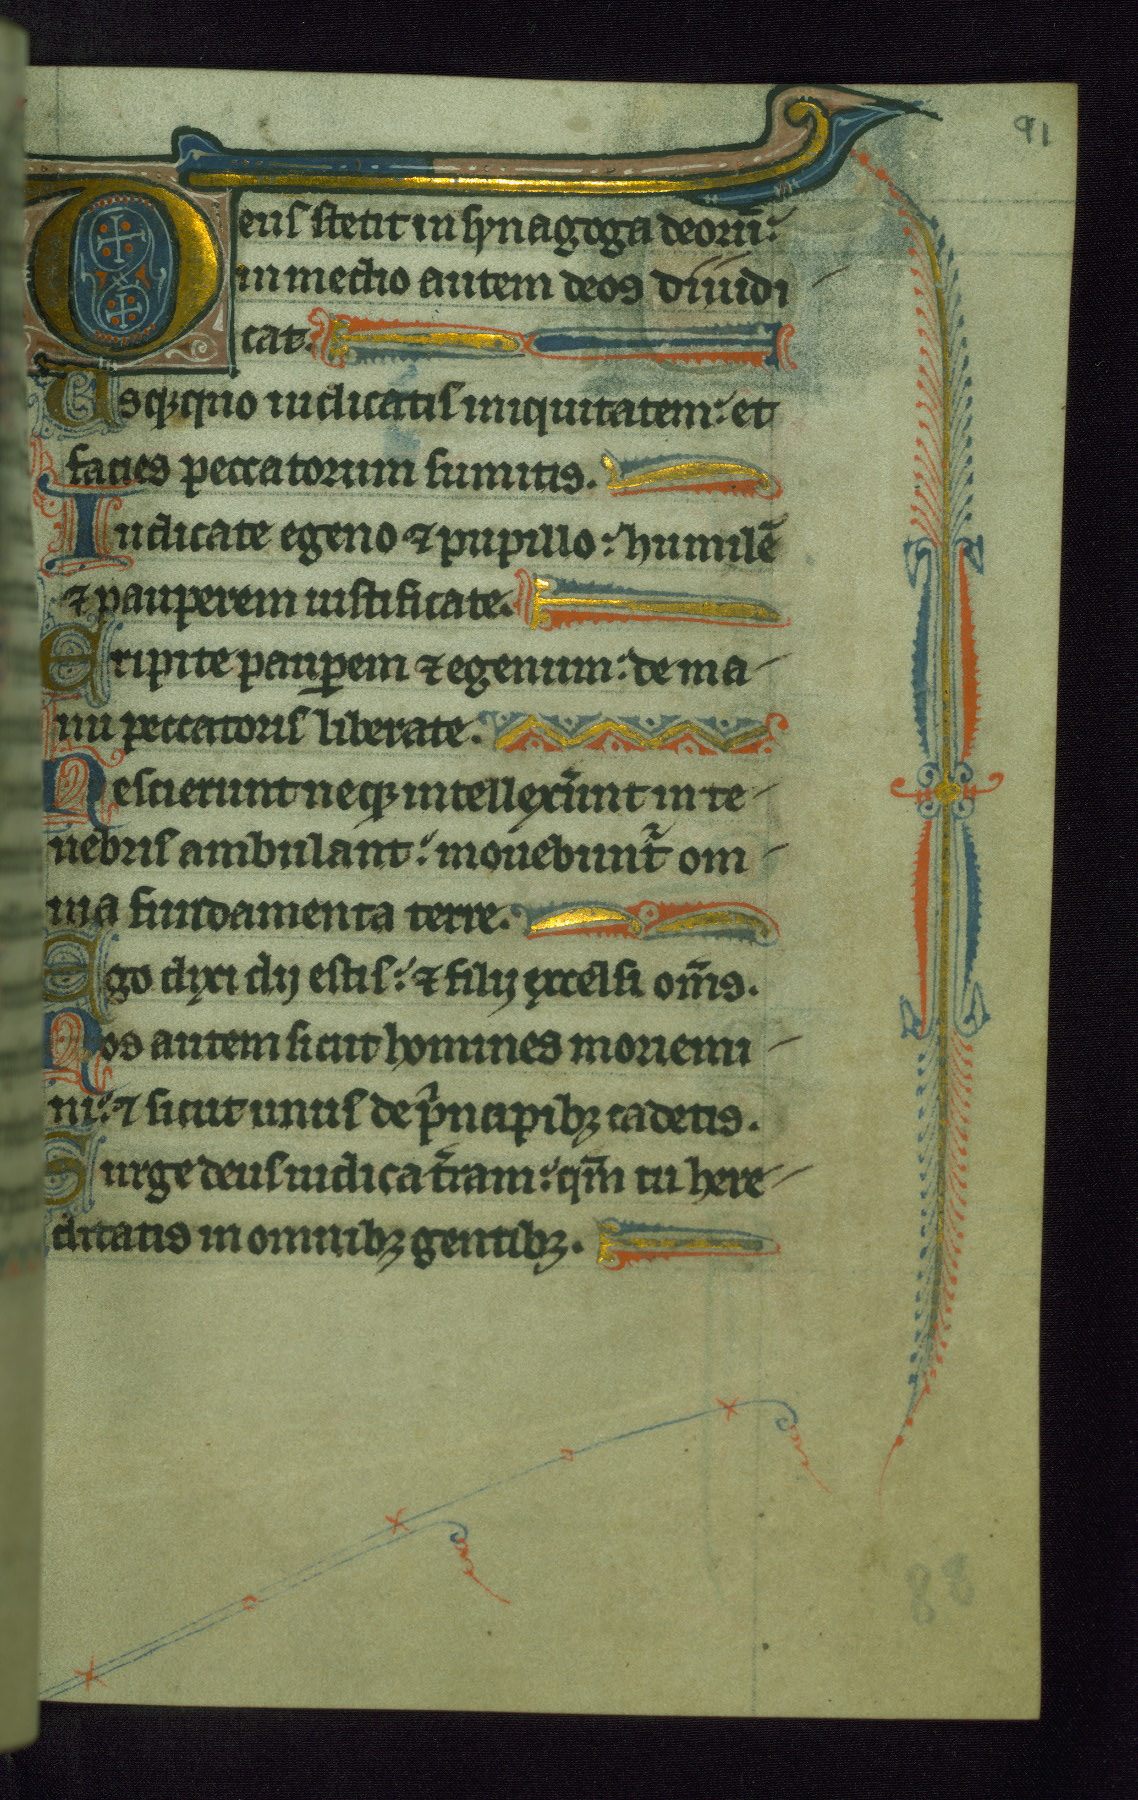 91
Deus stetit in synagoga deorū:
in medio autem deos diiudi
cat.
Usqꝫquo iudicatis iniquitatem: et
facies peccatorum sumitis.
Iudicate egeno ⁊ pupillo: humilē
⁊ pauperem iustificate.
Eripite pauꝑem ⁊ egenum: de ma
nu peccatoris liberate.
Nescierunt neqꝫ intellex̄unt in te
nebris ambulant: mouebunt᷑ om
nia fundamenta terre.
Ego dixi dij estis: ⁊ filij excelsi om̄s.
Vos autem sicut homines moriemi
ni: ⁊ sicut unus de pⁱncipibꝫ cadetis.
Surge deus iudica t̄ram: qm̄ tu here
ditatis in omnibꝫ gentibꝫ.
88